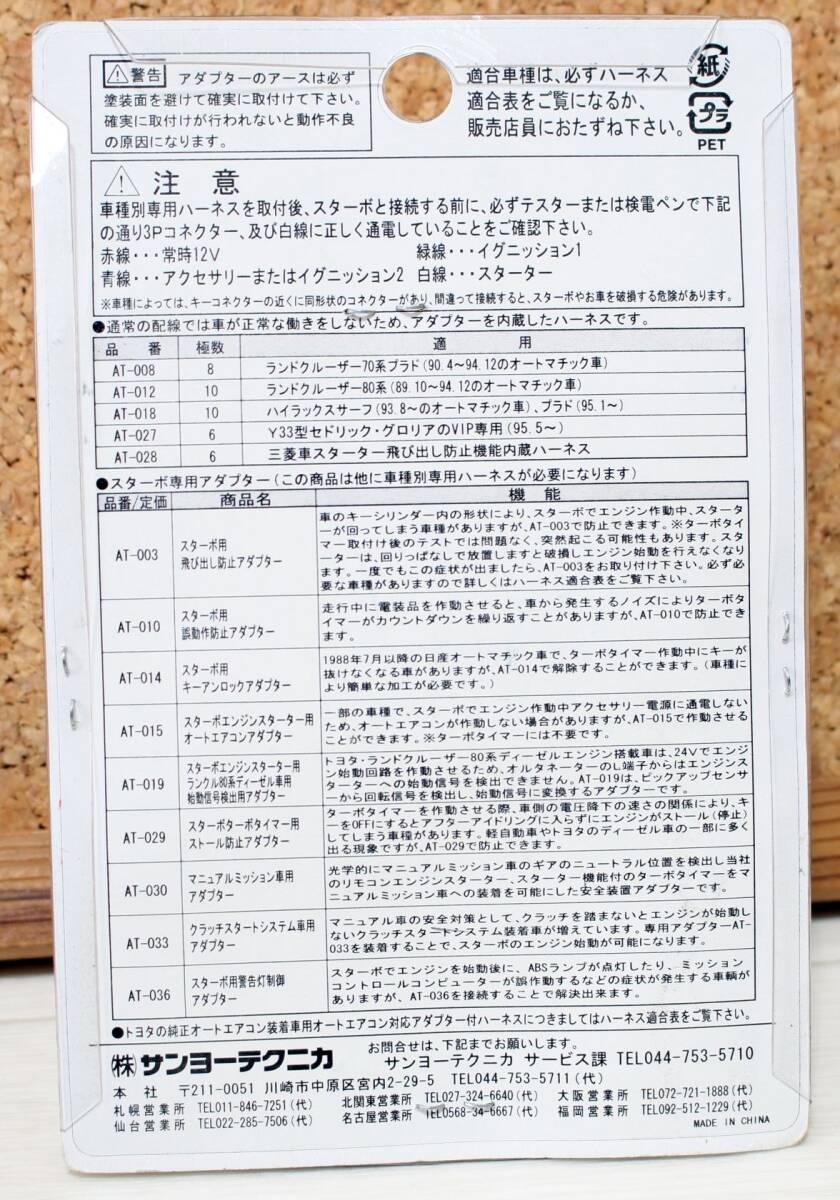 ⚠警告 アダプターのアースは必ず
塗装面を避けて確実に取付けて下さい。
確実に取付けが行われないと動作不良
の原因になります。
適合車種は、必ずハーネス
適合表をご覧になるか、
販売店員におたずね下さい。
紙
プラ
PET
⚠ 注 意
車種別専用ハーネスを取付後、スターボと接続する前に、必ずテスターまたは検電ペンで下記
の通り3Pコネクター、及び白線に正しく通電していることをご確認下さい。
赤線・・・常時12V 緑線・・・イグニッション1
青線・・・アクセサリーまたはイグニッション2 白線・・・スターター
※車種によっては、キーコネクターの近くに同形状のコネクターがあり、間違って接続すると、スターボやお車を破損する危険があります。
●通常の配線では車が正常な働きをしないため、アダプターを内蔵したハーネスです。
品 番 極数 適 用
AT-008 8 ランドクルーザー70系プラド(90.4〜94.12のオートマチック車)
AT-012 10 ランドクルーザー80系(89.10〜94.12のオートマチック車)
AT-018 10 ハイラックスサーフ(93.8〜のオートマチック車)、プラド(95.1〜)
AT-027 6 Y33型セドリック・グロリアのVIP専用(95.5〜)
AT-028 6 三菱車スターター飛び出し防止機能内蔵ハーネス
●スターボ専用アダプター(この商品は他に車種別専用ハーネスが必要になります)
品番/定価 商品名 機 能
AT-003
スターボ用
飛び出し防止アダプター
車のキーシリンダー内の形状により、スターボでエンジン作動中、スタータ
ーが回ってしまう車種がありますが、AT-003で防止できます。※ターボタイ
マー取付け後のテストでは問題なく、突然起こる可能性もあります。スタ
ーターは、回りっぱなしで放置しますと破損しエンジン始動を行えなくなり
ます。一度でもこの症状が出ましたら、AT-003をお取り付け下さい。必ず必
要な車種がありますので詳しくはハーネス適合表をご覧下さい。
AT-010
スターボ用
誤動作防止アダプター
走行中に電装品を作動させると、車から発生するノイズによりターボタ
イマーがカウントダウンを繰り返すことがありますが、AT-010で防止でき
ます。
AT-014
スターボ用
キーアンロックアダプター
1988年7月以降の日産オートマチック車で、ターボタイマー作動中にキーが
抜けなくなる車がありますが、AT-014で解除することができます。(車種に
より簡単な加工が必要です。)
AT-015
スターボエンジンスターター用
オートエアコンアダプター
一部の車種で、スターボでエンジン作動中アクセサリー電源に通電しない
ため、オートエアコンが作動しない場合がありますが、AT-015で作動させる
ことができます。※ターボタイマーには不要です。
AT-019
スターボエンジンスターター用
ランクル80系ディーゼル車用
始動信号検出用アダプター
トヨタ・ランドクルーザー80系ディーゼルエンジン搭載車は、24Vでエンジ
ン始動回路を作動させるため、オルタネーターのL端子からはエンジンス
ターターへの始動信号を検出できません。AT-019は、ピックアップセンサ
ーから回転信号を検出し、始動信号に変換するアダプターです。
AT-029
スターボターボタイマー用
ストール防止アダプター
ターボタイマーを作動する際、車側の電圧降下の速さの関係により、キ
ーをOFFにするとアフターアイドリングに入らずにエンジンがストール(停止)
してしまう車種があります。軽自動車やトヨタのディーゼル車の一部に多く
出る現象ですが、AT-029で防止できます。
AT-030
マニュアルミッション車用
アダプター
光学的にマニュアルミッション車のギアのニュートラル位置を検出し当社
のリモコンエンジンスターター、スターター機能付のターボタイマーをマ
ニュアルミッション車への装着を可能にした安全装置アダプターです。
AT-033
クラッチスタートシステム車用
アダプター
マニュアル車の安全対策として、クラッチを踏まないとエンジンが始動し
ないクラッチスタートシステム装着車が増えています。専用アダプターAT-
033を装着することで、スターボのエンジン始動が可能になります。
AT-036
スターボ用警告灯制御
アダプター
スターボでエンジンを始動後に、ABSランプが点灯したり、ミッション
コントロールコンピューターが誤作動するなどの症状が発生する車輌が
ありますが、AT-036を接続することで解決出来ます。
●トヨタの純正オートエアコン装着車用オートエアコン対応アダプター付ハーネスにつきましてはハーネス適合表をご覧下さい。
㈱サンヨーテクニカ
お問合せは、下記までお願いします。
サンヨーテクニカ サービス課 TEL044-753-5710
本 社 〒211-0051 川崎市中原区宮内2-29-5 TEL044-753-5711(代)
札幌営業所 TEL011-846-7251(代) 北関東営業所 TEL027-324-6640(代) 大阪営業所 TEL072-721-1888(代)
仙台営業所 TEL022-285-7506(代) 名古屋営業所 TEL0568-34-6667(代) 福岡営業所 TEL092-512-1229(代)
MADE IN CHINA